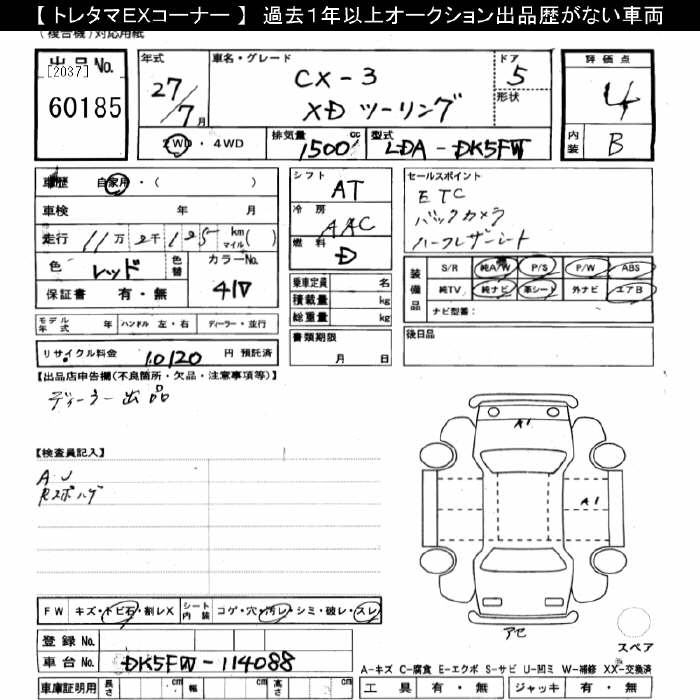 【トレタマEXコーナー】 過去1年以上オークション出品歴がない車両
(複合機)対応用紙
出品No.
[2037]
60185
年式 27/7月
車名・グレード
CX-3
XD ツーリング
ドア 5
形状
評価点
4
内装 B
2WD・4WD
排気量 1500cc
型式 LDA-DK5FW
車歴 自家用・( )
車検 年 月
走行 11万 2千 125 km マイル ( )
色 レッド 色替 カラーNo. 41V
保証書 有・無
シフト AT
冷房 AAC
燃料 D
乗車定員 名
積載量 kg
総重量 kg
書類期限
月 日
セールスポイント
ETC
バックカメラ
ハーフレザーシート
装備品
S/R 純A/W P/S P/W ABS
純TV 純ナビ 革シート 外ナビ エアB
ナビ型番:
後日品
モデル年式 年 ハンドル 左・右 ディーラー・並行
リサイクル料金 10120 円 預託済
【出品店申告欄(不良箇所・欠品・注意事項等)】
ディーラー出品
【検査員記入】
A.U
A1
A1
FW キズ・トビ石・割レX シート内装 コゲ・穴・汚レ・シミ・破レ・スレ
登録No.
車台No. DK5FW-114088
車庫証明用 長さ cm 幅 cm 高さ cm
スペア
A-キズ C-腐食 E-エクボ S-サビ U-凹ミ W-補修 XX-交換済
工具 有・無 ジャッキ 有・無